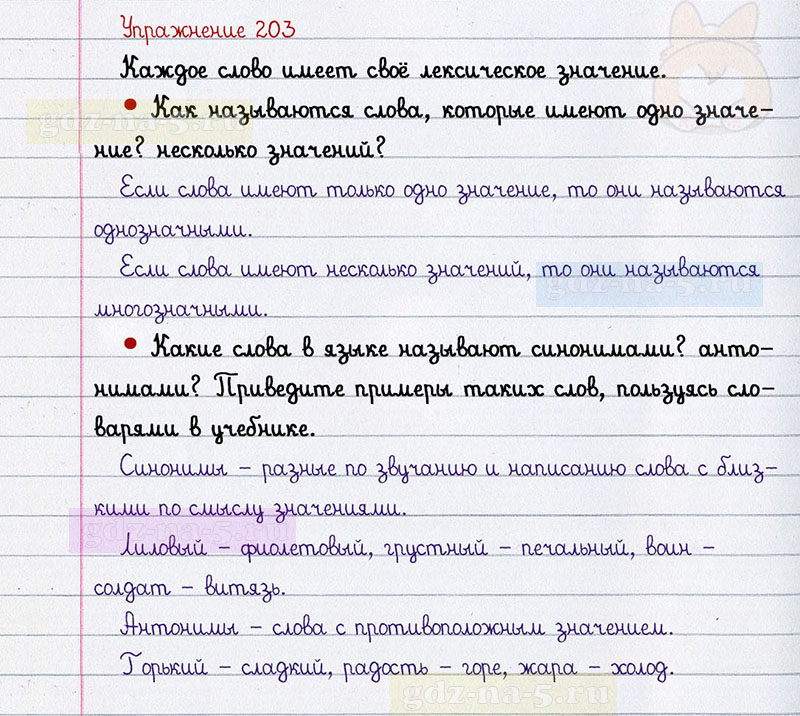 Упражнение 203
Каждое слово имеет своё лексическое значение.
• Как называются слова, которые имеют одно значе-
ние? несколько значений?
Если слова имеют только одно значение, то они называются
однозначными.
Если слова имеют несколько значений, то они называются
многозначными.
• Какие слова в языке называют синонимами? анто-
нимами? Приведите примеры таких слов, пользуясь сло-
варями в учебнике.
Синонимы – разные по звучанию и написанию слова с близ-
кими по смыслу значениями.
Лиловый – фиолетовый, грустный – печальный, воин –
солдат – витязь.
Антонимы – слова с противоположным значением.
Горький – сладкий, радость – горе, жара – холод.
gdz-na-5.ru
gdz-na-5.ru
gdz-na-5.ru
gdz-na-5.ru